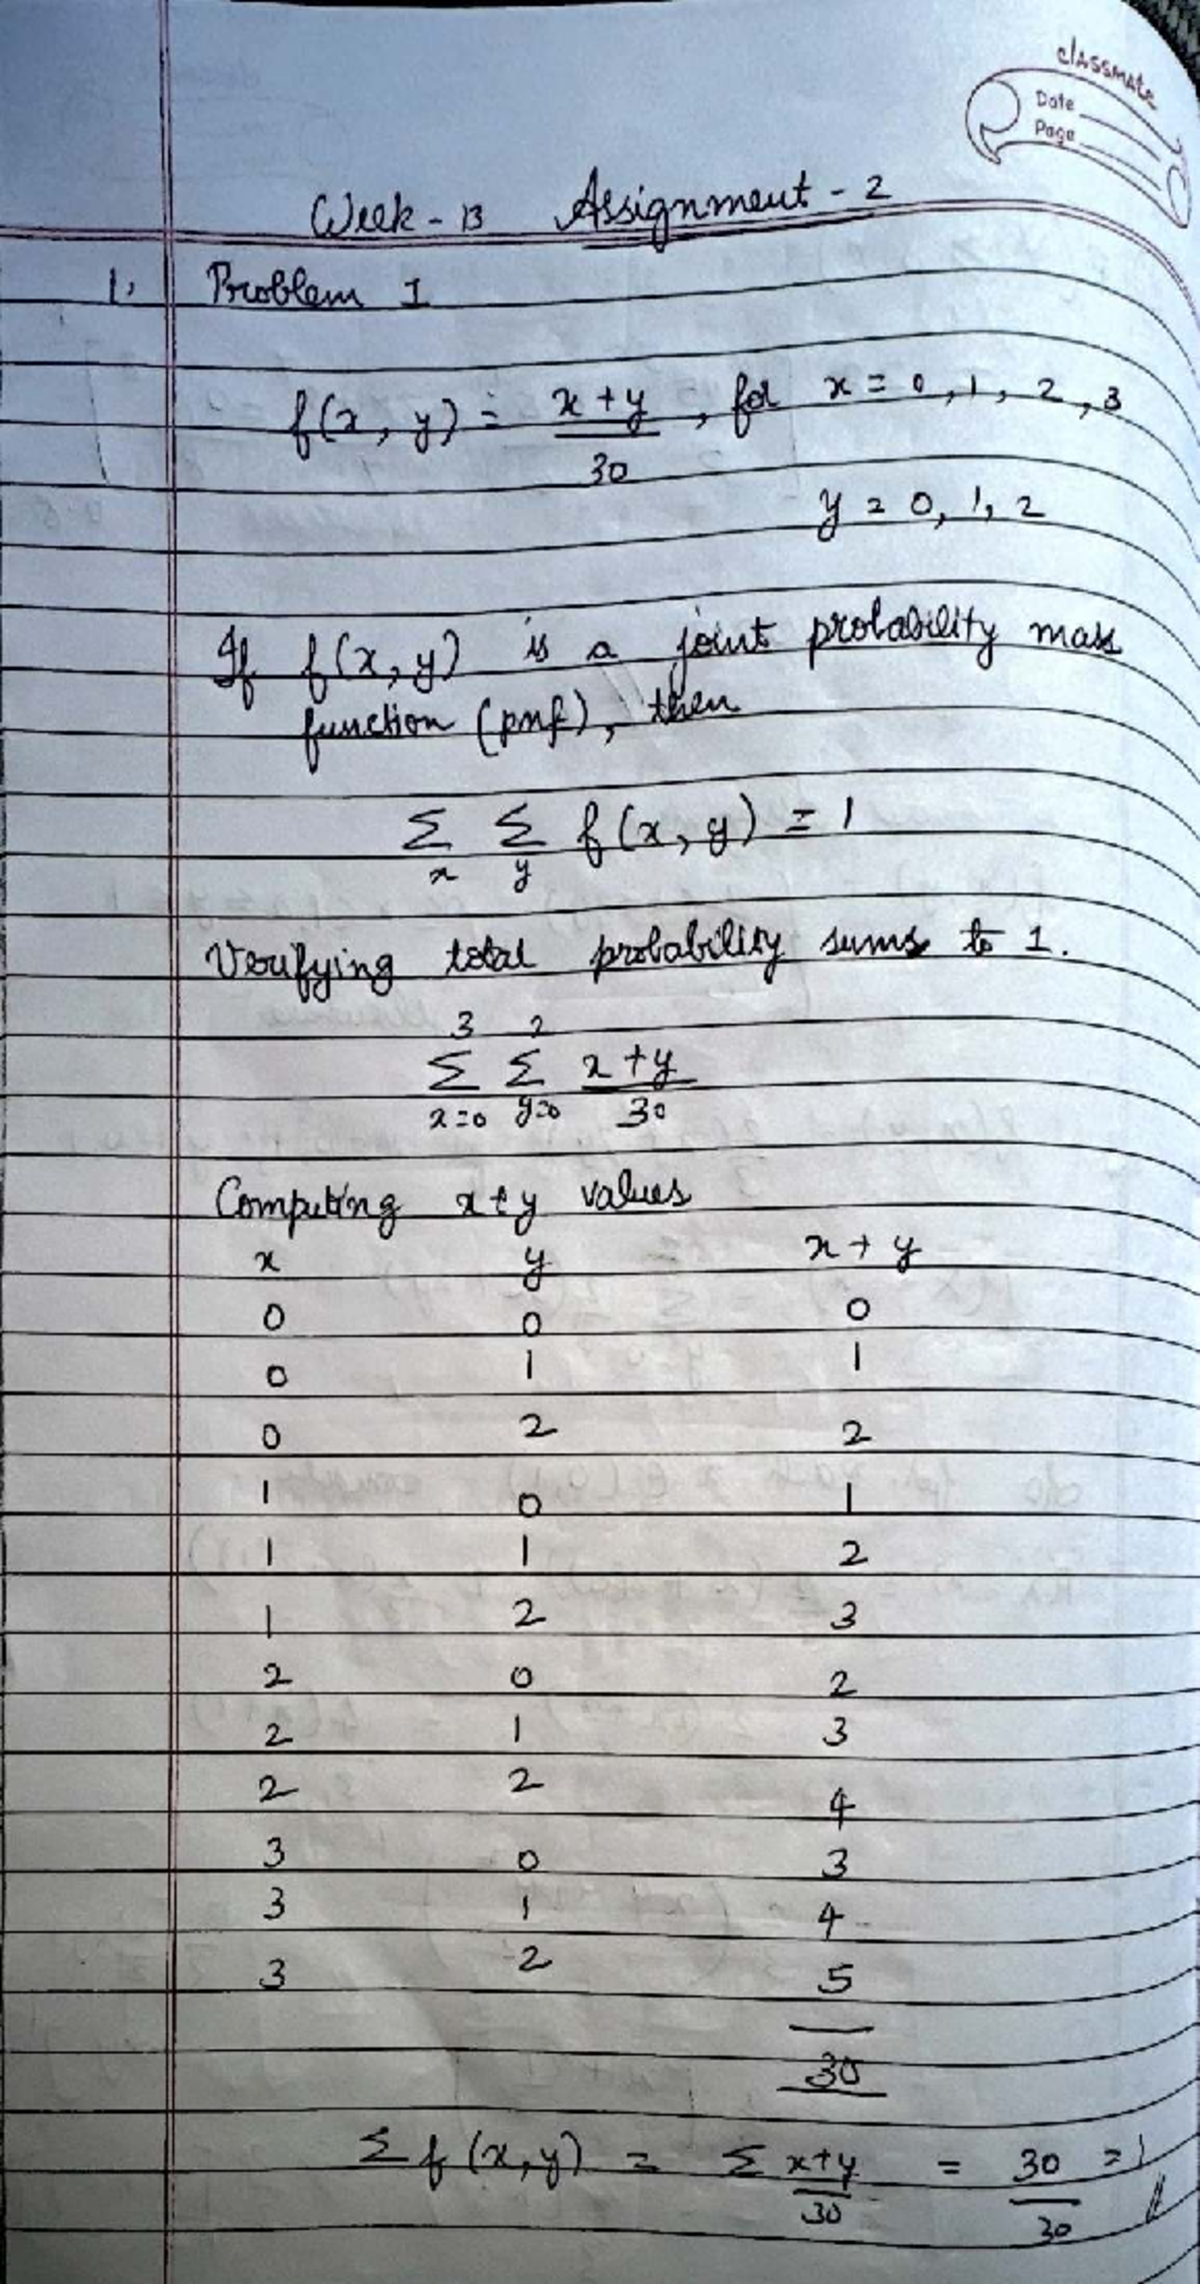 classmate
Date
Page
Week - 13 Assignment - 2
1. Problem 1
f(x, y) = x + y / 30, for x = 0, 1, 2, 3
y = 0, 1, 2
If f(x, y) is a joint probability mass
function (pmf), then
Σx Σy f(x, y) = 1
Verifying total probability sums to 1.
3 2
Σ Σ x + y
x=0 y=0 30
Computing x+y values
x y x + y
0 0 0
0 1 1
0 2 2
1 0 1
1 1 2
1 2 3
2 0 2
2 1 3
2 2 4
3 0 3
3 1 4
3 2 5
30
Σ f (x, y) = Σ x+y / 30 = 30 / 30 = 1 //